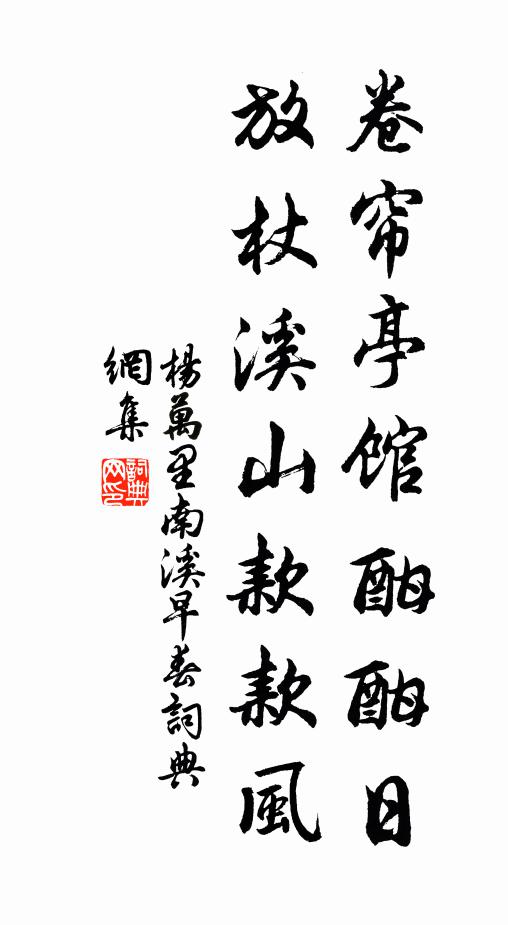 卷帘亭馆酣酣日
放杖溪山款款風
楊萬里南溪早春詞典
網集
詞典网印